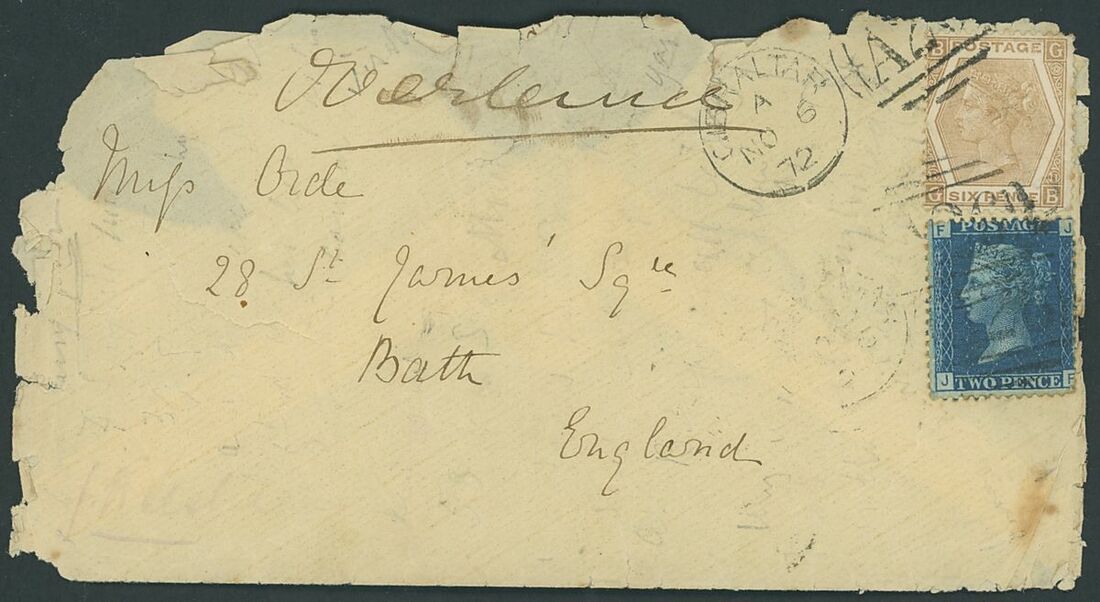 Overland
GIBRALTAR
A
NO 6
72
A26
B POSTAGE G
G SIX PENCE B
Miss Orde
28 St James' Sqre
Bath
England
F POSTAGE J
J TWO PENCE F